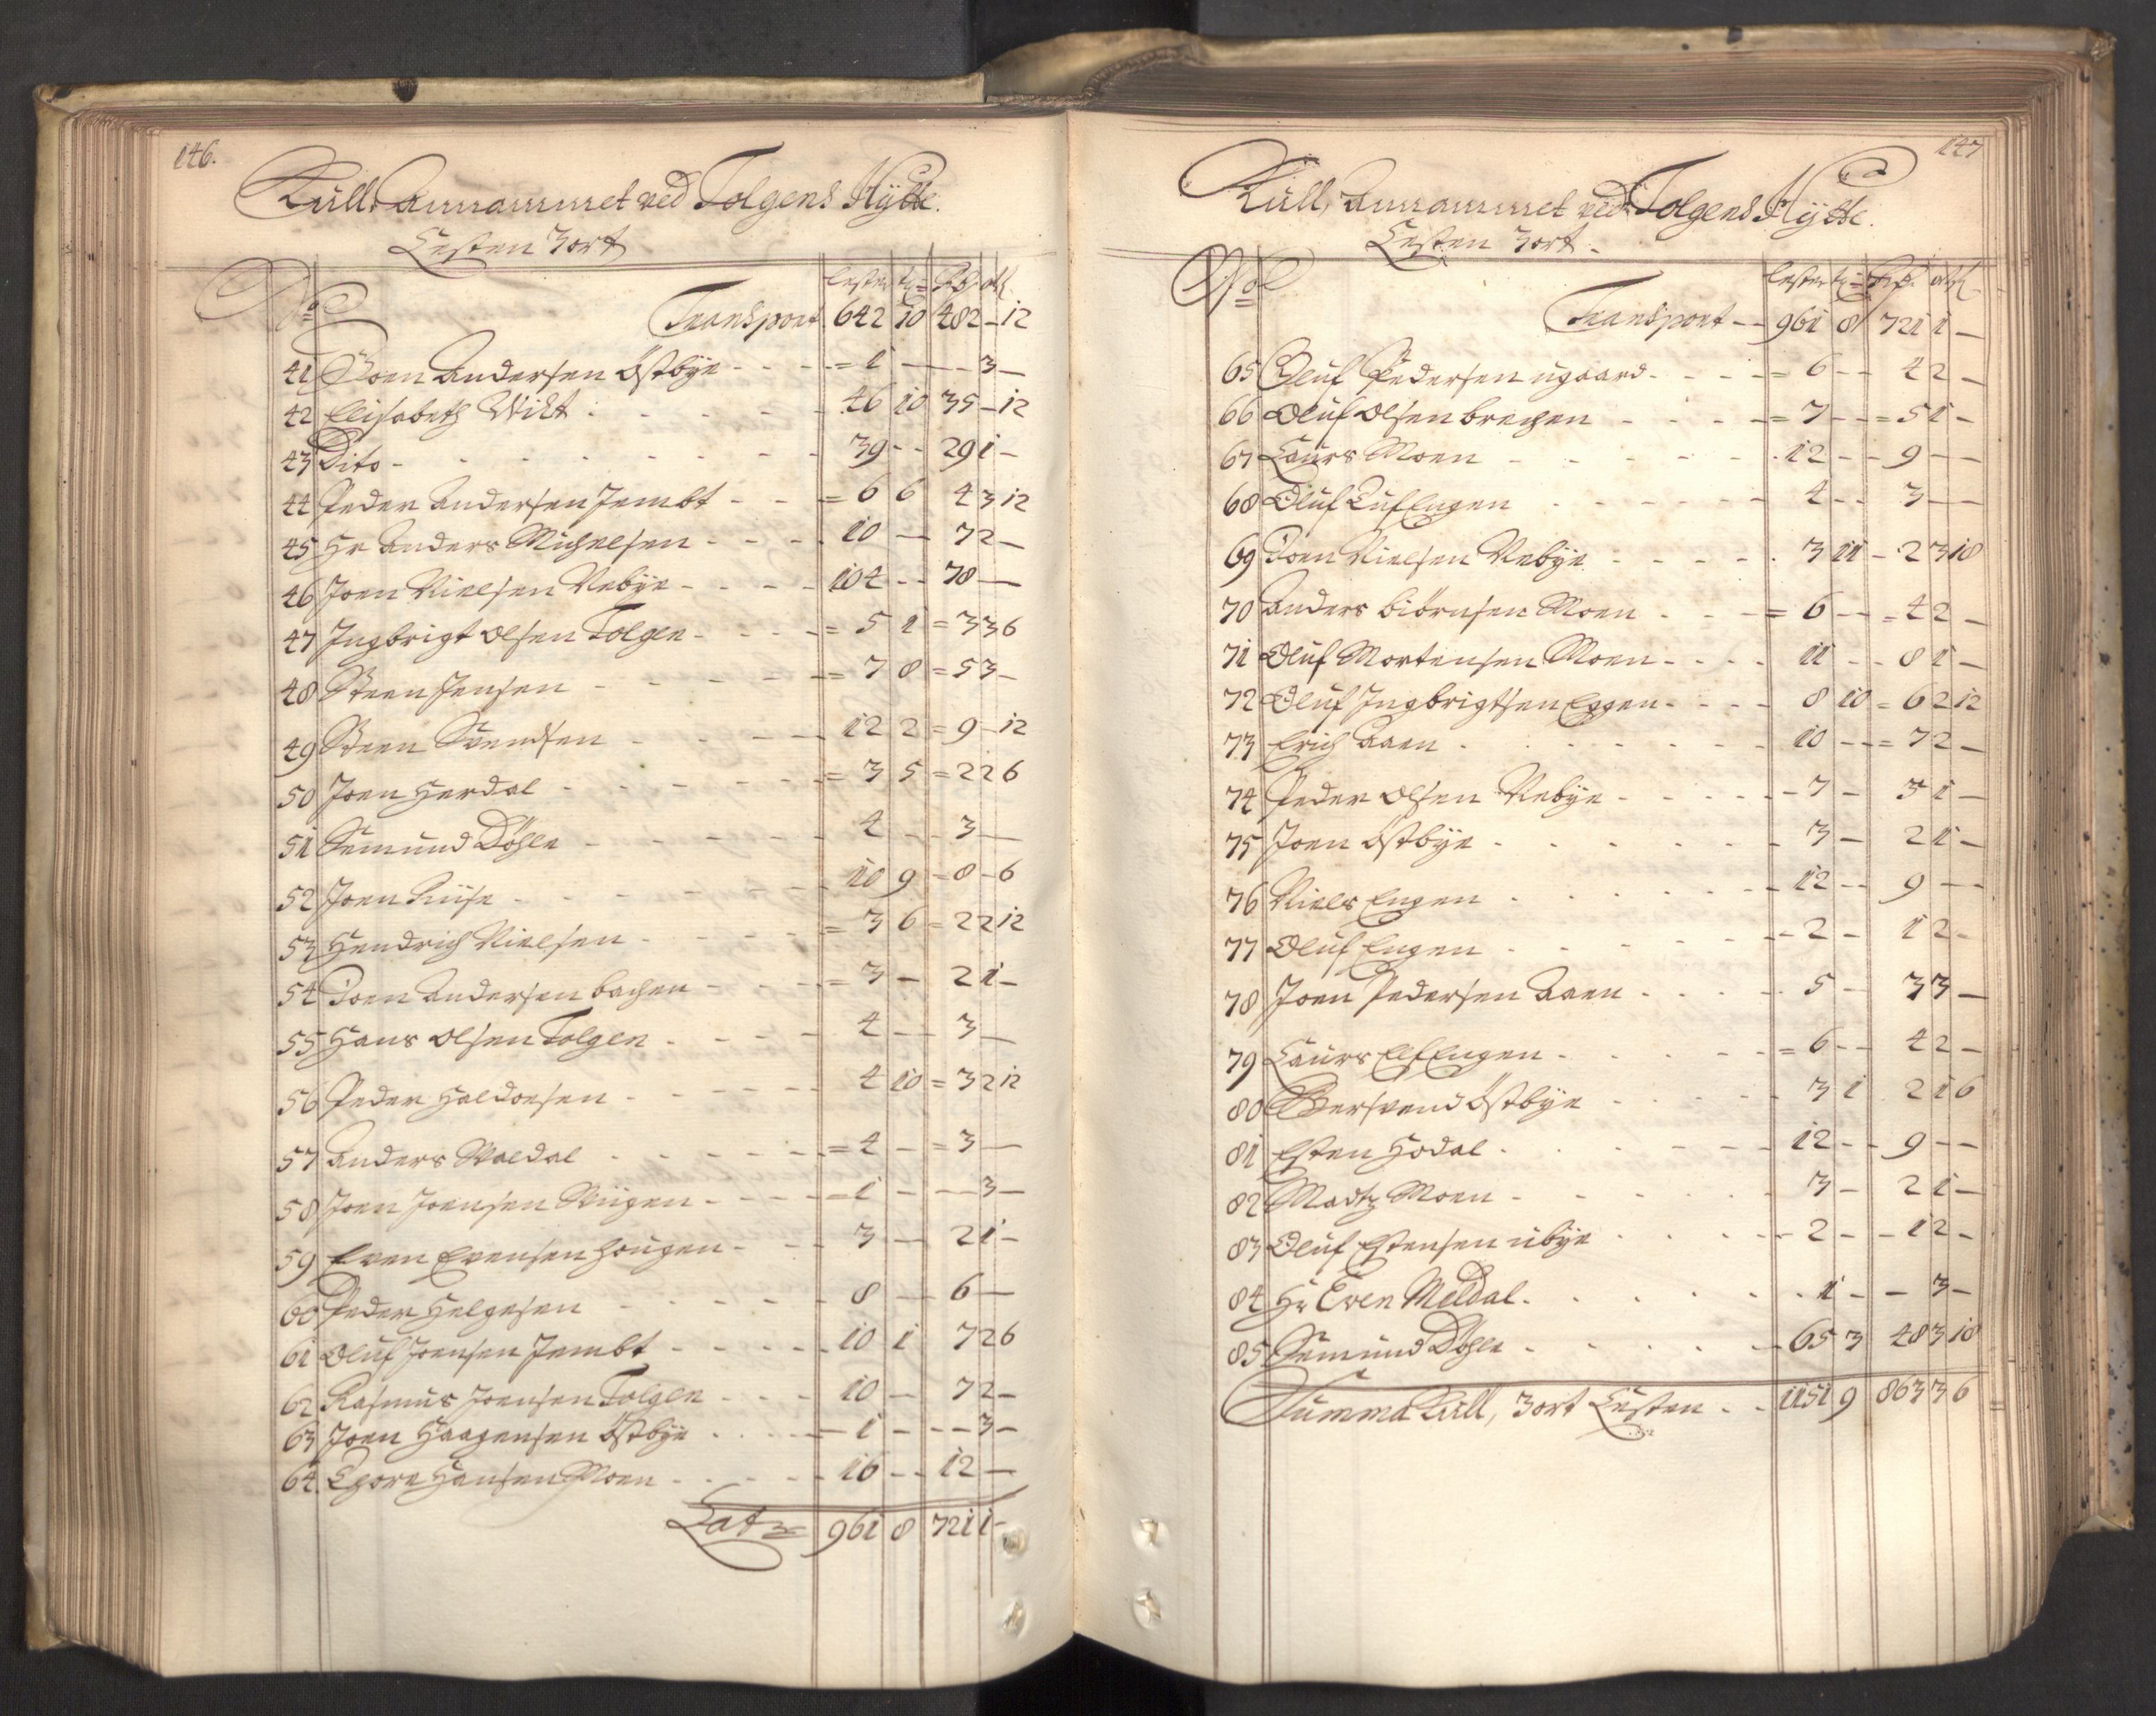 146.
Kull, Annammet ved Tolgens Hÿtte.
Lesten 3 ort
No
Lester tr= Rdr ort ß
Transport 642 10 482 - 12
41 Joen Andersen Östbÿe - - - = 1 - - - 3 -
42 Elisabeth Wilt - - - - 46 10 35 - 12
43 Dito - - - - - 39 - - 29 1 -
44 Peder Andersen Jembt - - = 6 6 4 3 12
45 Hr Anders Michelsen - - - 10 - 7 2 -
46 Joen Nielsen Nebÿe - - - 104 - - 78 -
47 Ingbrigt Olsen Tolgen - - - = 5 1 = 3 3 6
48 Steen Jensen - - - - = 7 8 = 5 3 -
49 Steen Svendsen - - - - 12 2 = 9 - 12
50 Joen Herdal - - - - = 3 5 = 2 2 6
51 Semund Döhle - - - - 4 - - 3 -
52 Joen Kiise - - - - 10 9 = 8 - 6
53 Hendrich Nielsen - - - = 3 6 = 2 2 12
54 Joen Andersen bachen - - - = 3 - 2 1 -
55 Hans Olsen Tolgen - - - 4 - - 3 -
56 Peder Haldoesen - - - - 4 10 = 3 2 12
57 Anders Waldal - - - - = 4 - = 3 -
58 Joen Joensen Wiigen - - - = 1 - - - 3 -
59 Even Evensen Hougen - - - 3 - 2 1 -
60 Peder Helgesen - - - - 8 - 6 -
61 Oluf Joensen Jembt - - - - 10 1 7 2 6
62 Rasmus Joensen Tolgen - - - 10 - 7 2 -
63 Joen Haagensen Östbÿe - - - 1 - - - 3 -
64 Tpore Hansen Moen - - - - 16 - - 12 -
Lat= 961 8 721 1 -
147
Kull, Annammet ved Tolgens Hÿtte.
Lesten 3 ort -
No
Lester tr= Rdr ort ß
Transport - - 961 8 721 1 -
65 Oluf Pedersen ugaard - - - = 6 - - 4 2 -
66 Oluf Olsen brechen - - - = 7 - - = 5 1 -
67 Laurs Moen - - - - 12 - - 9 - -
68 Oluf LusEngen - - - - 4 - - 3 - -
69 Joen Nielsen Nebÿe - - - - 3 11 - 2 3 18
70 Anders biörnsen Moen - - - = 6 - - = 4 2 -
71 Oluf Mortensen Moen - - - - 11 - - 8 1 -
72 Oluf Ingbrigtsen Eggen - - - - 8 10 = 6 2 12
73 Erich Aaen - - - - - 10 - - = 7 2 -
74 Peder Olsen Nebÿe - - - - - 7 - 5 1 -
75 Joen Östbÿe - - - - - 3 - 2 1 -
76 Niels Engen - - - - - 12 - - 9 - -
77 Oluf Engen - - - - - 2 - 1 2 -
78 Joen Pedersen Aaen - - - - 5 - 3 3 -
79 Laurs ElfEngen - - - - = 6 - - 4 2 -
80 Bersvend Östbÿe - - - - 3 1 2 1 6
81 Esten Hodal - - - - - 12 - - 9 - -
82 Madtz Moen - - - - 3 - 2 1 -
83 Oluf Estensen ubÿe - - - - 2 - - 1 2 -
84 Hr Even Meldal - - - - 1 - - 3 -
85 Semund Döhle - - - - - 65 3 48 3 18
Summa Kull, 3 ort Lesten - - 1151 9 863 3 6